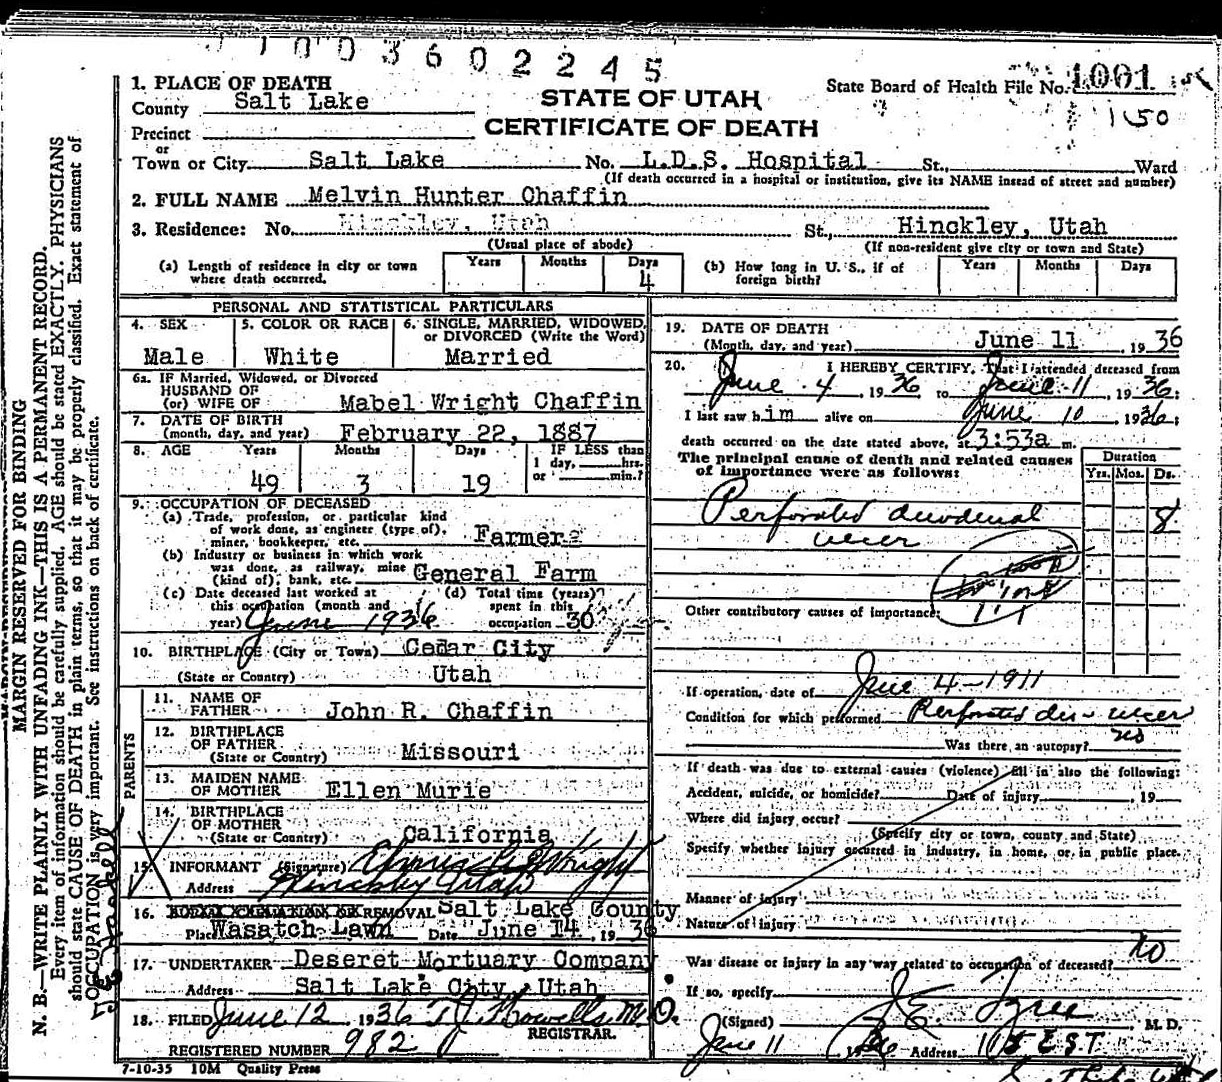 1003602245
1. PLACE OF DEATH
County Salt Lake
STATE OF UTAH
State Board of Health File No. 1001
CERTIFICATE OF DEATH
1150
Precinct
or
Town or City Salt Lake No. L.D.S. Hospital St., Ward
(If death occurred in a hospital or institution, give its NAME insead of street and number)
2. FULL NAME Melvin Hunter Chaffin
3. Residence: No. Hinckley, Utah St., Hinckley, Utah
(Usual place of abode) (If non-resident give city or town and State)
(a) Length of residence in city or town where death occurred. Years Months Days 4
(b) How long in U. S., if of foreign birth? Years Months Days
PERSONAL AND STATISTICAL PARTICULARS
4. SEX Male
5. COLOR OR RACE White
6. SINGLE, MARRIED, WIDOWED, or DIVORCED (Write the Word) Married
6a. IF Married, Widowed, or Divorced
HUSBAND OF
(or) WIFE OF Mabel Wright Chaffin
7. DATE OF BIRTH
(month, day, and year) February 22, 1887
8. AGE Years Months Days IF LESS than
1 day, hrs.
or min.?
49 3 19
9. OCCUPATION OF DECEASED
(a) Trade, profession, or particular kind
of work done, as engineer (type of),
miner, bookkeeper, etc. Farmer
(b) Industry or business in which work
was done, as railway, mine
(kind of), bank, etc. General Farm
(c) Date deceased last worked at
this occupation (month and
year) June 1936
(d) Total time (years)
spent in this
occupation 30
10. BIRTHPLACE (City or Town) Cedar City
(State or Country) Utah
PARENTS
11. NAME OF
FATHER John R. Chaffin
12. BIRTHPLACE
OF FATHER
(State or Country) Missouri
13. MAIDEN NAME
OF MOTHER Ellen Murie
14. BIRTHPLACE
OF MOTHER
(State or Country) California
15. INFORMANT (Signature) Wright
Address Hinckley Utah
16. REMOVAL Salt Lake County
Place Wasatch Lawn Date June 14, 1936
17. UNDERTAKER Deseret Mortuary Company
Address Salt Lake City, Utah
18. FILED June 12 1936 T J Howells M.D.
REGISTRAR.
REGISTERED NUMBER 982
7-10-35 10M Quality Press
19. DATE OF DEATH
(Month, day, and year) June 11, 1936
20. I HEREBY CERTIFY, That I attended deceased from
June 4, 1936, to June 11, 1936;
I last saw him alive on June 10, 1936;
death occurred on the date stated above, at 3:53a m.
The principal cause of death and related causes
of importance were as follows:
Duration
Yrs. Mos. Ds.
Perforated duodenal 8
ulcer
Other contributory causes of importance:
If operation, date of June 4-1911
Condition for which performed Perforated duo ulcer
Was there an autopsy? no
If death was due to external causes (violence) fill in also the following:
Accident, suicide, or homicide? Date of injury , 19
Where did injury occur?
(Specify city or town, county and State)
Specify whether injury occurred in industry, in home, or in public place.
Manner of injury
Nature of injury
Was disease or injury in any way related to occupation of deceased? No
If so, specify
(Signed) J. E. M. D.
June 11 Address E S T
N. B.—WRITE PLAINLY WITH UNFADING INK—THIS IS A PERMANENT RECORD.
MARGIN RESERVED FOR BINDING
Every item of information should be carefully supplied. AGE should be stated EXACTLY. PHYSICIANS
should state CAUSE OF DEATH in plain terms, so that it may be properly classified. Exact statement of
OCCUPATION is very important. See instructions on back of certificate.